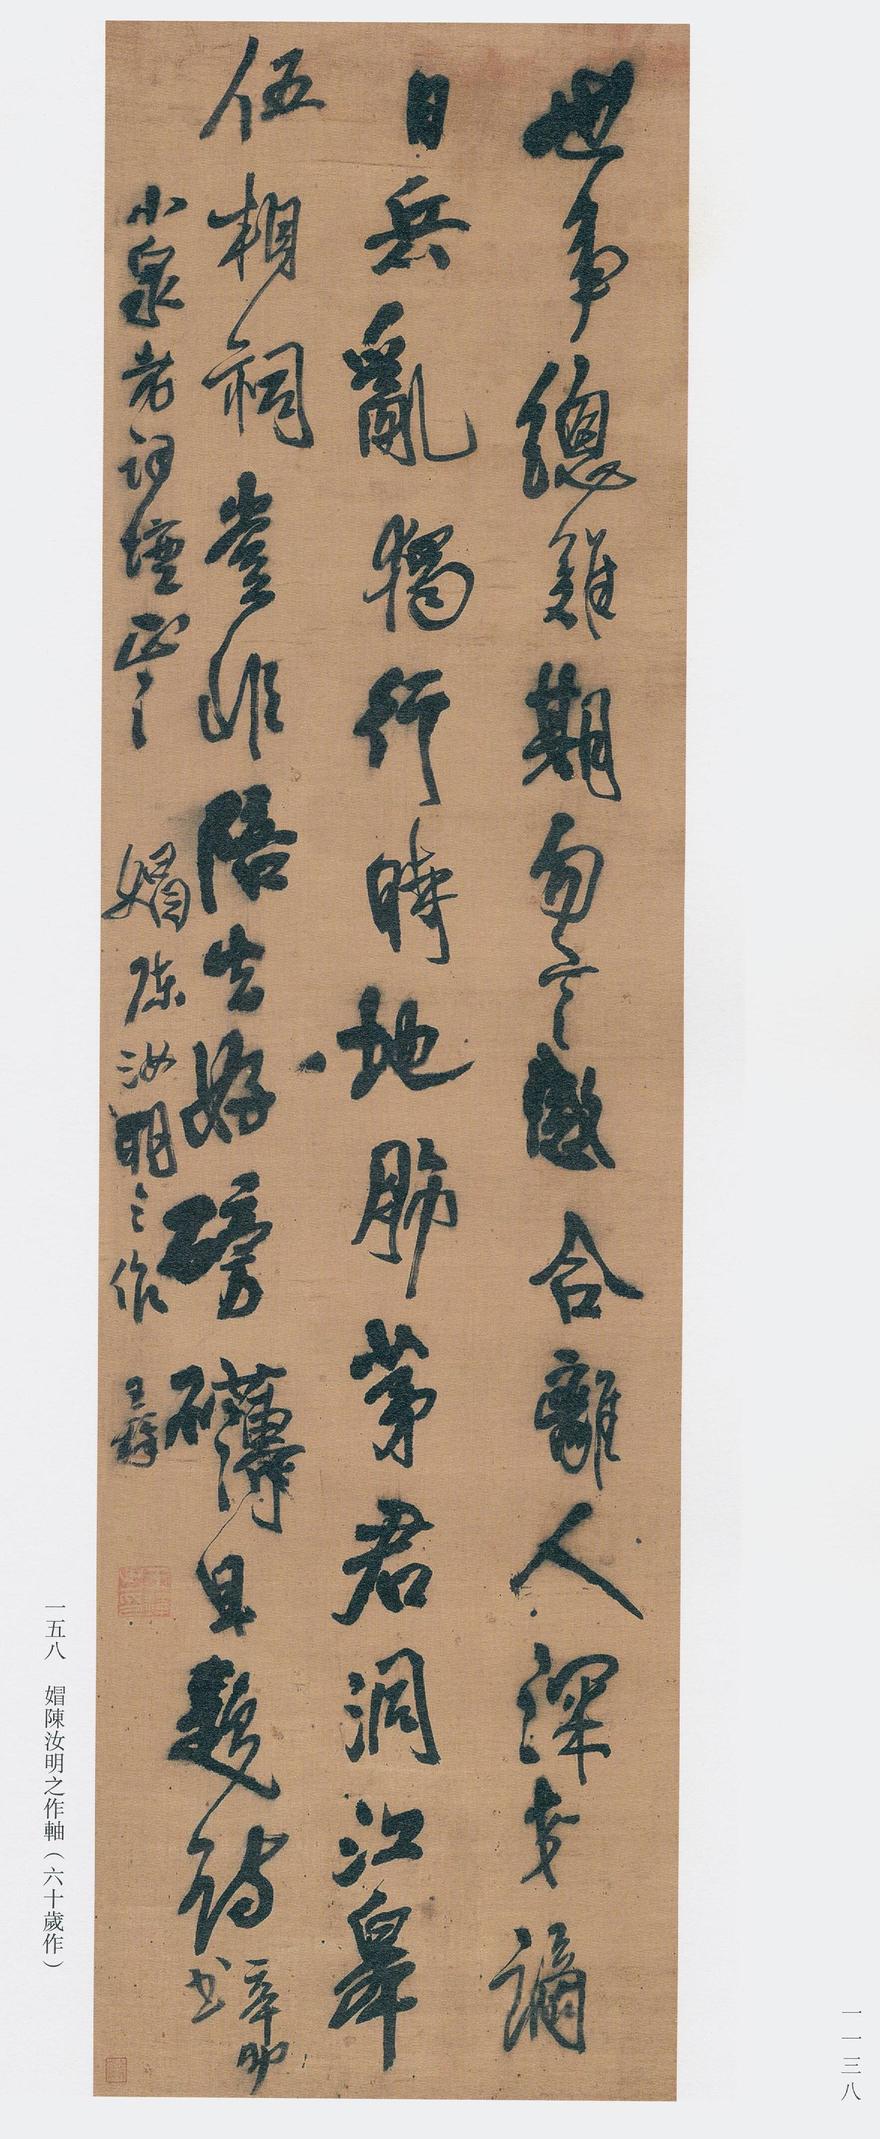 世事總難期勿言感合離人深交謫
日兵亂獨行時地肺茅君洞江皋
伍相祠豈非陪去好磅礴且題詩 辛卯書
小泉老詞壇正之 媢陳汝明之作 王鐸
一五八 媢陳汝明之作軸（六十歲作）
一一三八